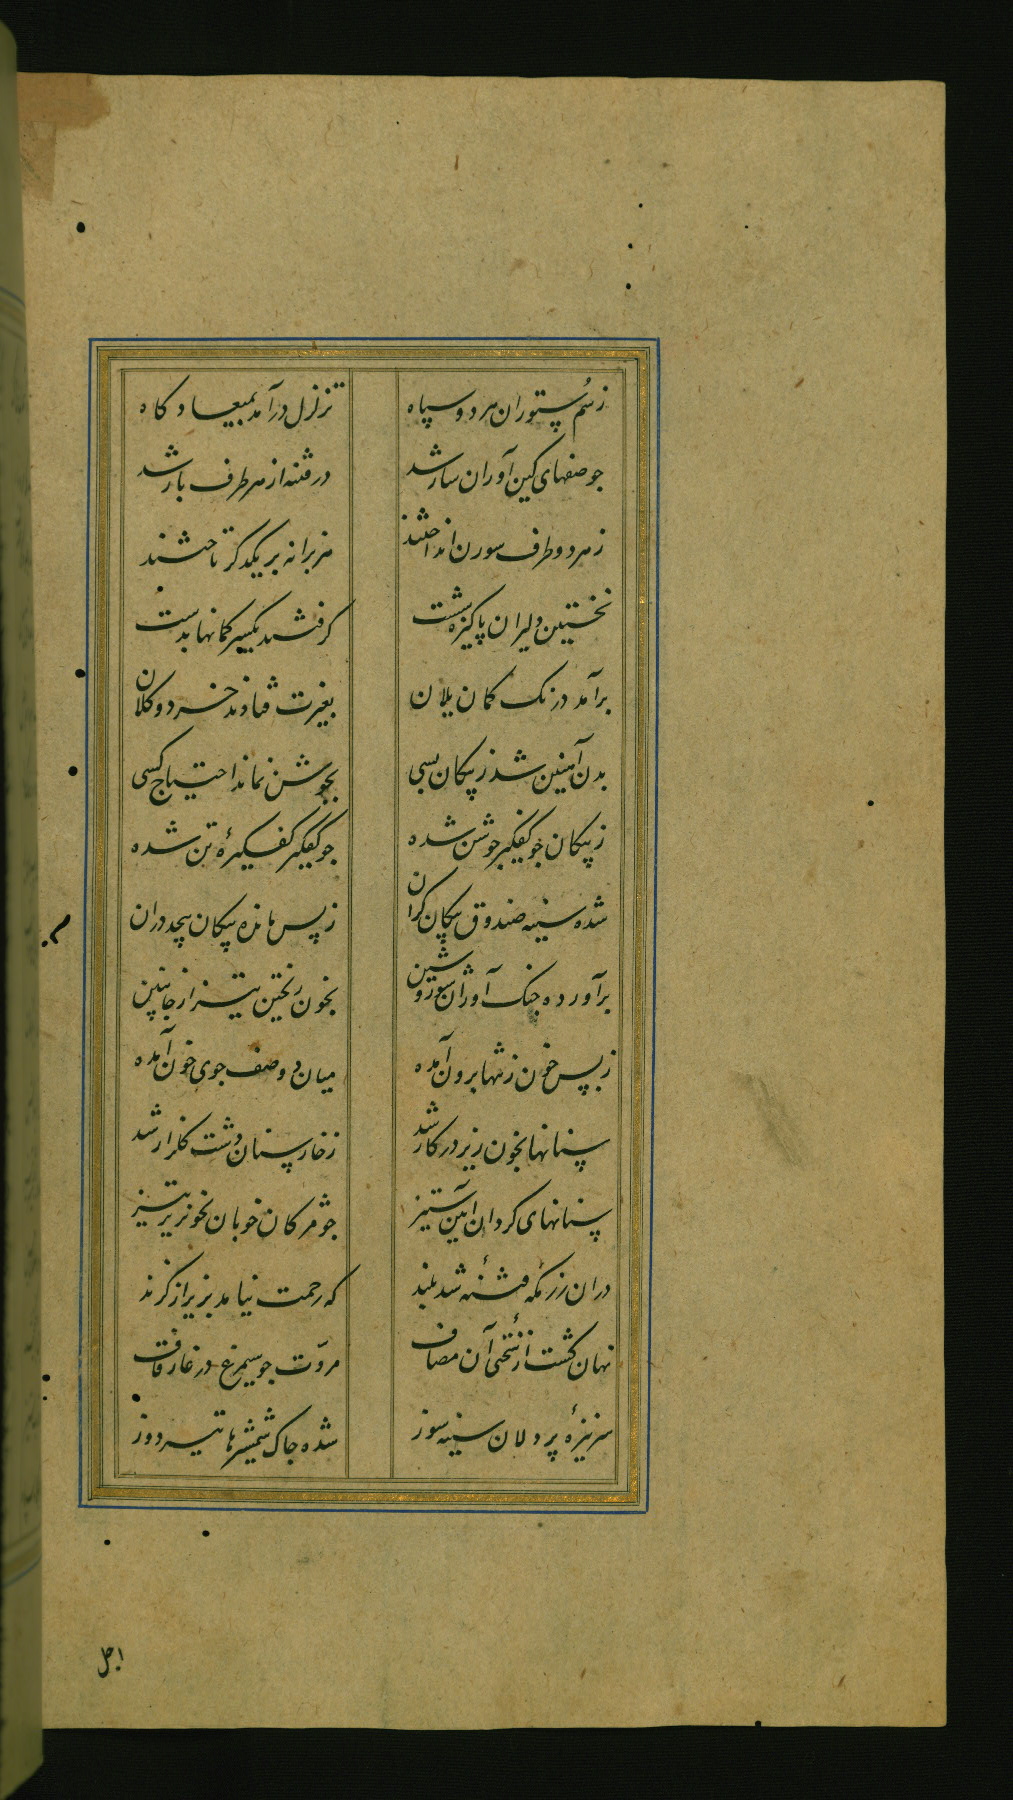 ز سُم ستوران هر دو سپاه تزلزل در آمد بمیعاد کاه
جو صفهای کین آوران ساز شد در فتنه از هر طرف باز شد
ز هر دو طرف سورن انداختند هزبرانه بر یکدکر تاختند
نخستین دلیران پاکیزه شست کرفتند یکسر کمانها بدست
برآمد درنک کمان یلان بغیرت فتادند خرد و کلان
بدن آهنین شد ز پیکان بسی بجوشن نماند احتیاج کسی
ز پیکان جو کفکیر جوشن شده جو کفکیر کفکیرهٔ تن شده
شده سینه صندوق پیکان کران ز بس مانده پیکان بیحد دران
برآورده جنک آوران سور و شین بخون ریختن تیز از جانبین
ز بس خون ز تنها برون آمده میان دو صف جوی خون آمده
سنانها بخون ریز در کار شد ز خار سنان دشت کلزار شد
سنانهای کردان آیین ستیز جو مژکان خوبان بخونریز تیز
دران رزمکه فتنهٔ شد بلند که رحمت نیامد بزیر از کزند
نهان کشت از سختی آن مصاف مروّت جو سیمرغ در غار قاف
سر نیزهٔ پردلان سینه سوز شده جاک شمشیرها تیر دوز